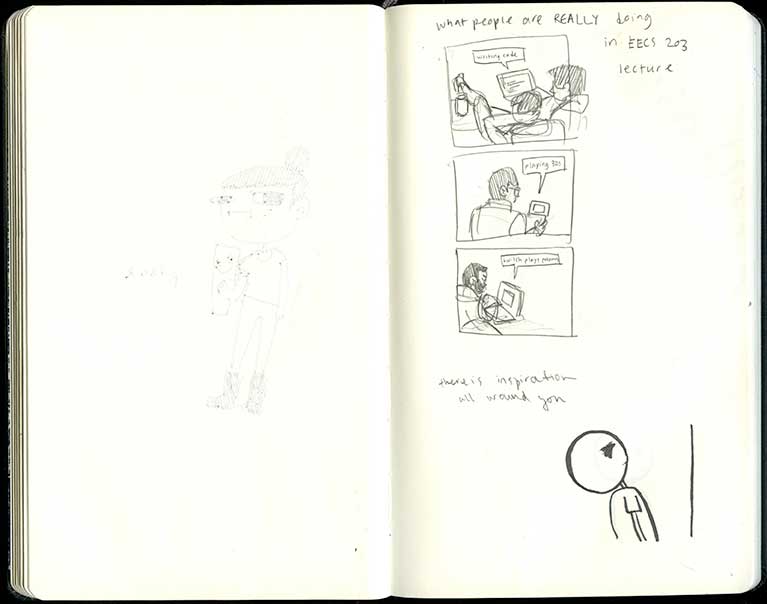 what people are REALLY doing
in EECS 203
lecture
writing code
playing 3DS
twitch plays
there is inspiration
all around you